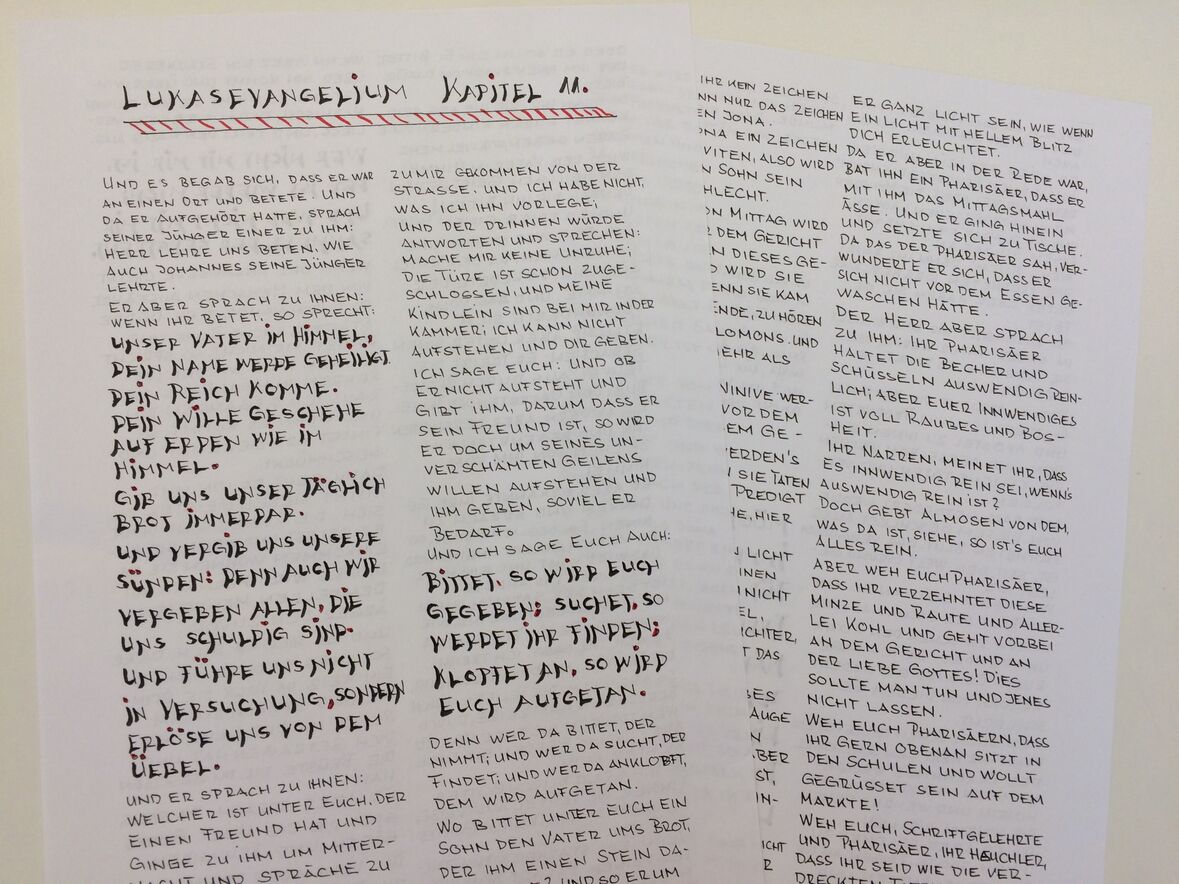 LUKASEVANGELIUM KAPITEL 11.
UND ES BEGAB SICH, DASS ER WAR
AN EINEN ORT UND BETETE. UND
DA ER AUFGEHÖRT HATTE, SPRACH
SEINER JÜNGER EINER ZU IHM:
HERR LEHRE UNS BETEN, WIE
AUCH JOHANNES SEINE JÜNGER
LEHRTE.
ER ABER SPRACH ZU IHNEN:
WENN IHR BETET, SO SPRECHT:
UNSER VATER IM HIMMEL,
DEIN NAME WERDE GEHEILIGT.
DEIN REICH KOMME.
DEIN WILLE GESCHEHE
AUF ERDEN WIE IM
HIMMEL.
GIB UNS UNSER TÄGLICH
BROT IMMERDAR.
UND VERGIB UNS UNSERE
SÜNDEN: DENN AUCH WIR
VERGEBEN ALLEN, DIE
UNS SCHULDIG SIND.
UND FÜHRE UNS NICHT
IN VERSUCHUNG, SONDERN
ERLÖSE UNS VON DEM
ÜEBEL.
UND ER SPRACH ZU IHNEN:
WELCHER IST UNTER EUCH, DER
EINEN FREUND HAT UND
GINGE ZU IHM UM MITTER-
NACHT UND SPRÄCHE ZU
ZU MIR GEKOMMEN VON DER
STRASSE. UND ICH HABE NICHT,
WAS ICH IHN VORLEGE;
UND DER DRINNEN WÜRDE
ANTWORTEN UND SPRECHEN:
MACHE MIR KEINE UNRUHE;
DIE TÜRE IST SCHON ZUGE-
SCHLOSSEN, UND MEINE
KINDLEIN SIND BEI MIR IN DER
KAMMER; ICH KANN NICHT
AUFSTEHEN UND DIR GEBEN.
ICH SAGE EUCH: UND OB
ER NICHT AUFSTEHT UND
GIBT IHM, DARUM DASS ER
SEIN FREUND IST, SO WIRD
ER DOCH UM SEINES UN-
VERSCHÄMTEN GEILENS
WILLEN AUFSTEHEN UND
IHM GEBEN, SOVIEL ER
BEDARF.
UND ICH SAGE EUCH AUCH:
BITTET, SO WIRD EUCH
GEGEBEN; SUCHET, SO
WERDET IHR FINDEN;
KLOPFET AN, SO WIRD
EUCH AUFGETAN.
DENN WER DA BITTET, DER
NIMMT; UND WER DA SUCHT, DER
FINDET; UND WER DA ANKLOBFT,
DEM WIRD AUFGETAN.
WO BITTET UNTER EUCH EIN
SOHN DEN VATER UMS BROT,
DER IHM EINEN STEIN DA-
? UND SO ER UM
IHR KEIN ZEICHEN
NN NUR DAS ZEICHEN
EN JONA.
ONA EIN ZEICHEN
VITEN, ALSO WIRD
N SOHN SEIN
HLECHT.
ON MITTAG WIRD
R DEM GERICHT
N DIESES GE-
D WIRD SIE
ENN SIE KAM
ENDE, ZU HÖREN
LOMONS. UND
EHR ALS
NINIVE WER-
VOR DEM
EM GE-
ERDEN'S
SIE TÄTEN
PREDIGT
HE, HIER
LICHT
INEN
NICHT
EL,
CHTER,
T DAS
ES
AUGE
N
BER
ST,
IN-
ICHT
R
ER GANZ LICHT SEIN, WIE WENN
EIN LICHT MIT HELLEM BLITZ
DICH ERLEUCHTET.
DA ER ABER IN DER REDE WAR,
BAT IHN EIN PHARISÄER, DASS ER
MIT IHM DAS MITTAGSMAHL
ÄSSE. UND ER GING HINEIN
UND SETZTE SICH ZU TISCHE.
DA DAS DER PHARISÄER SAH, VER-
WUNDERTE ER SICH, DASS ER
SICH NICHT VOR DEM ESSEN GE-
WASCHEN HÄTTE.
DER HERR ABER SPRACH
ZU IHM: IHR PHARISÄER
HALTET DIE BECHER UND
SCHÜSSELN AUSWENDIG REIN-
LICH; ABER EUER INNWENDIGES
IST VOLL RAUBES UND BOS-
HEIT.
IHR NARREN, MEINET IHR, DASS
ES INNWENDIG REIN SEI, WENN'S
AUSWENDIG REIN IST?
DOCH GEBT ALMOSEN VON DEM,
WAS DA IST, SIEHE, SO IST'S EUCH
ALLES REIN.
ABER WEH EUCH PHARISÄER,
DASS IHR VERZEHNTET DIESE
MINZE UND RAUTE UND ALLER-
LEI KOHL UND GEHT VORBEI
AN DEM GERICHT UND AN
DER LIEBE GOTTES! DIES
SOLLTE MAN TUN UND JENES
NICHT LASSEN.
WEH EUCH PHARISÄERN, DASS
IHR GERN OBENAN SITZT IN
DEN SCHULEN UND WOLLT
GEGRÜSSET SEIN AUF DEM
MARKTE!
WEH EUCH, SCHRIFTGELEHRTE
UND PHARISÄER, IHR HEUCHLER,
DASS IHR SEID WIE DIE VER-
DRECKTEN